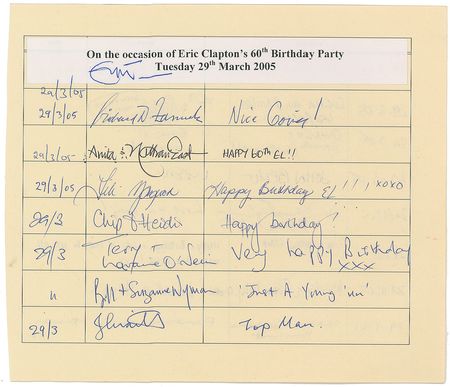 On the occasion of Eric Clapton's 60th Birthday Party
Tuesday 29th March 2005
29/3/05
29/3/05 Richard D. Nice Going!
29/3/05 Anita & Nathan East HAPPY 60TH EL!!
29/3/05 Happy Birthday El!!! xoxo
29/3 Chip & Heidi Happy birthday!
29/3 Terry + Lorraine O'Neill Very happy Birthday
xxx
" Bill + Suzanne Wyman 'Just A Young 'un'
29/3 Top Man.